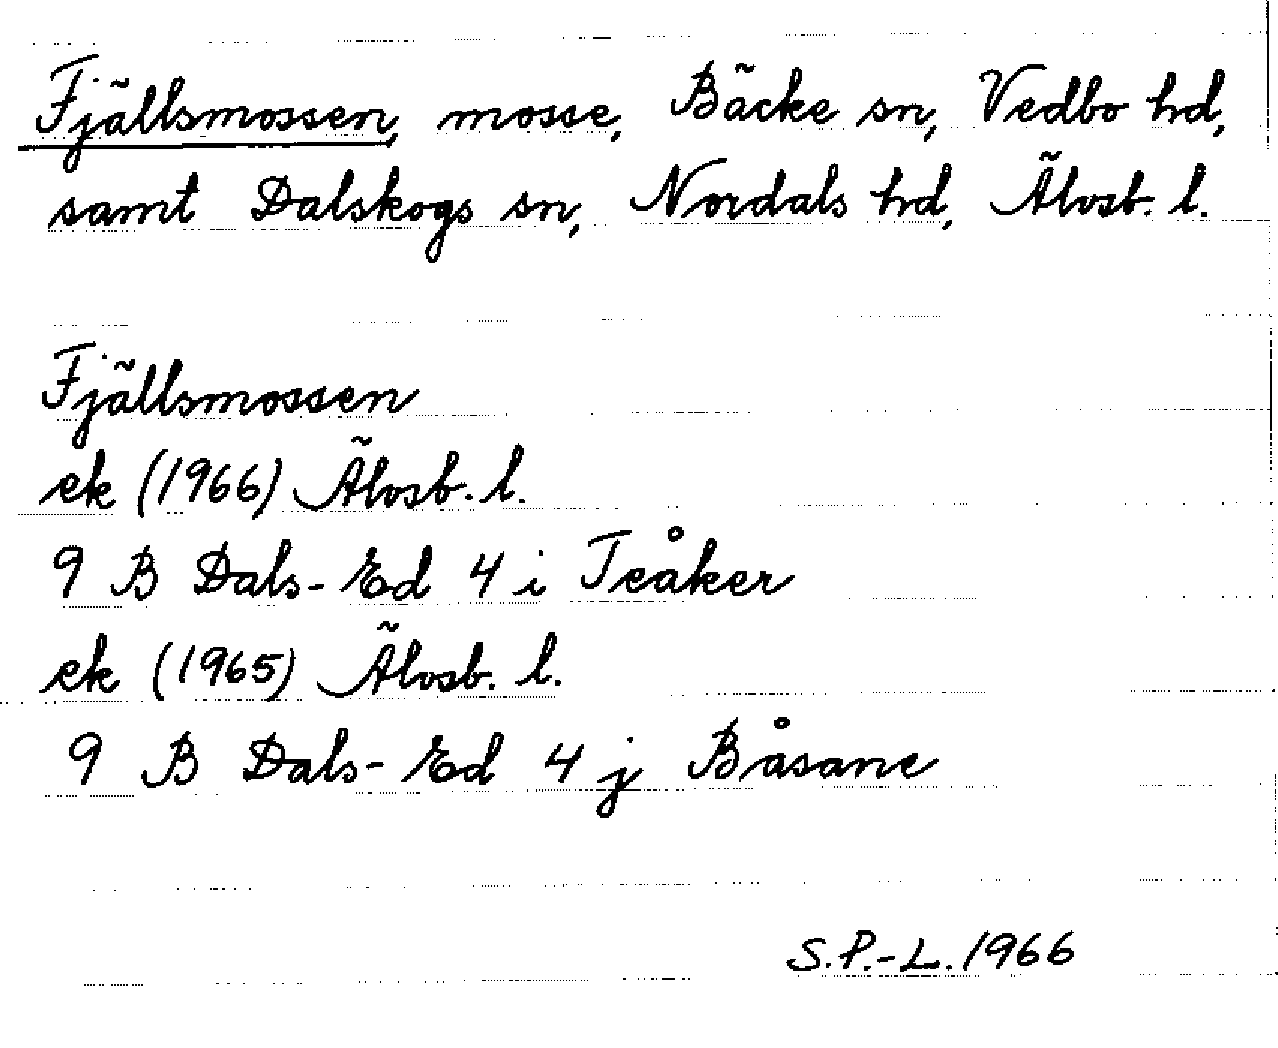 Fjällsmossen, mosse, Bäcke sn, Vedbo hd,
samt Dalskogs sn, Nordals hd, Älvsb. l.
Fjällsmossen
ek (1966) Älvsb. l.
9 B Dals-Ed 4 i Teåker
ek (1965) Älvsb. l.
9 B Dals-Ed 4 j Båsane
S.P.-L. 1966